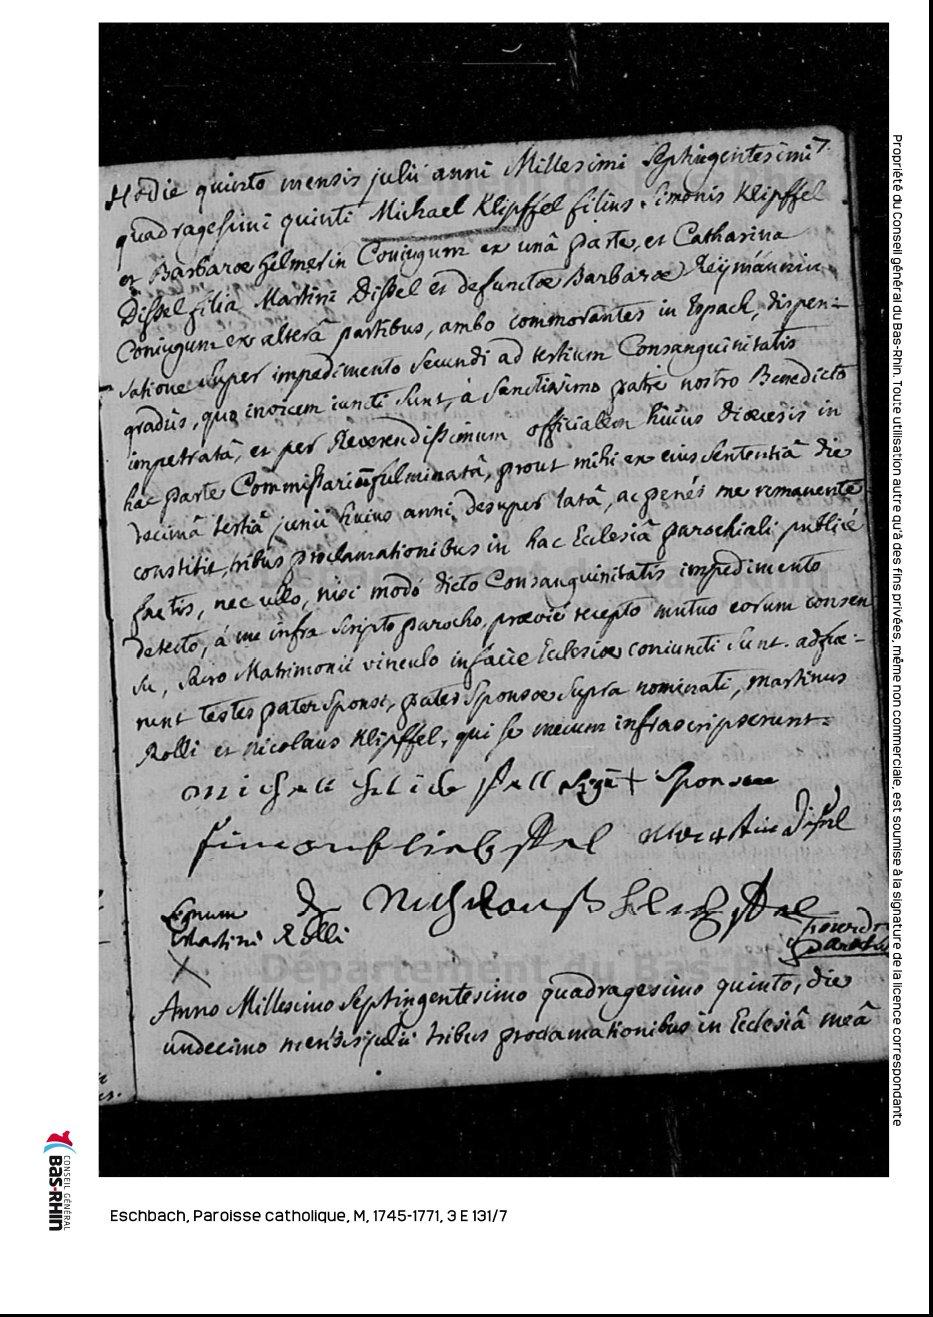 Hodie quinto mensis julii anni Millesimi Septingentesimi 7.
quadragesimi quinti Michael Klipffel filius Simonis Klipffel
et Barbarae Helmerin Coniugum ex unâ parte, et Catharina
Dissel filia Martini Dissel et defunctae Barbarae Reymännin
Coniugum ex alterâ partibus, ambo commorantes in Espach, dispen-
satione super impedimento secundi ad tertium Consanguinitatis
gradûs, quo invicem iuncti sunt, à Sanctissimo patre nostro Benedicto
impetratâ, et per Reverendissimum officialem huius dioecesis in
hac parte Commissarium fulminatâ, prout mihi ex eius sententiâ die
decimâ tertiâ junii huius anni desuper latâ, ac penés me remanente
constitit, tribus proclamationibus in hac Eclesiâ parochiali publicé
factis, nec ullo, nisi modó dicto Consanguinitatis impedimento
detecto, á me infra scripto parocho, praevié recepto mutuo eorum consen
su, Sacro Matrimonii vinculo in facie Eclesiae coniuncti sunt. adfue-
runt testes pater sponsi, pater sponsae supra nominati, Martinus
Rolli et Nicolaus Klipffel, qui se mecum infrascripserunt.
michell Sig + Sponsae
simon Martin Disel
Signum
Martini Rolli
X
Département du Bas-Rhin
Anno Millesimo Septingentesimo quadragesimo quinto, die
undecimo mensis julii tribus proclamationibus in Eclesiâ meâ
Propriété du Conseil général du Bas-Rhin. Toute utilisation autre qu'à des fins privées, même non commerciale, est soumise à la signature de la licence correspondante
CONSEIL GÉNÉRAL
Bas-Rhin
Eschbach, Paroisse catholique, M, 1745-1771, 3 E 131/7